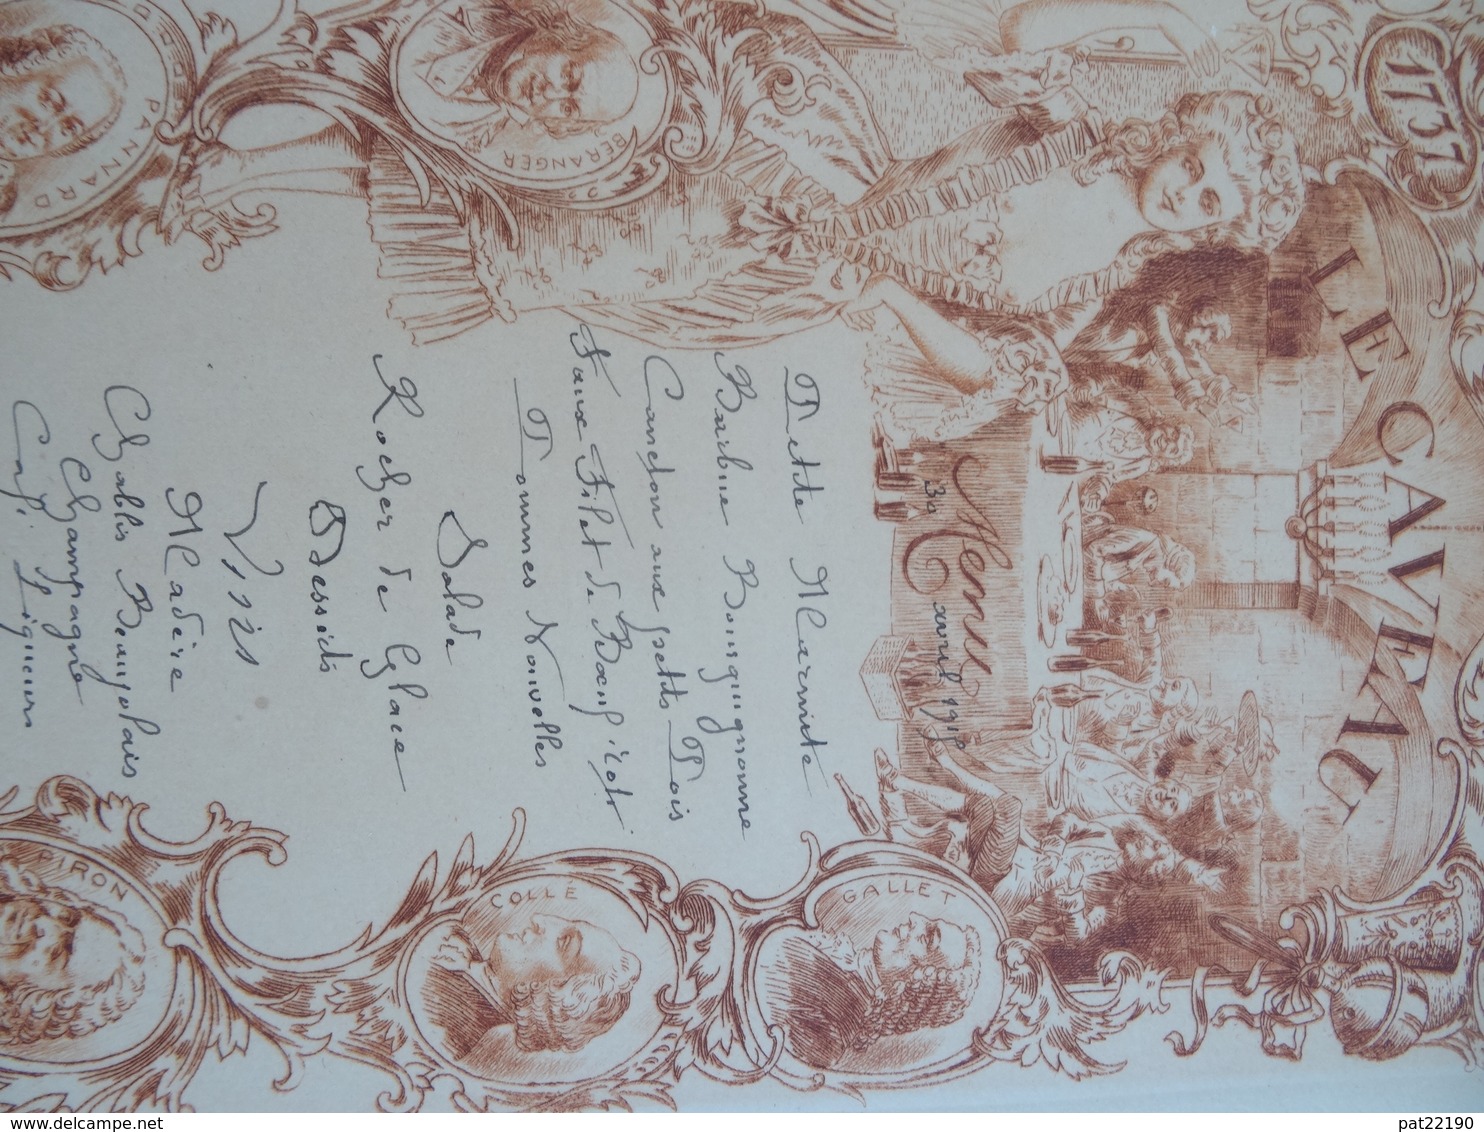 1737
LE CAVEAU
Menu
30 avril 1919
GALLET
BÉRANGER
COLLÉ
PANNARD
PIRON
Petite Marmite
Barbue Bourguignonne
Caneton aux petits Pois
Faux Filet de Bœuf rôti
Pommes Nouvelles
Salade
Rocher de Glace
Dessert
Vins
Madère
Chablis Beaujolais
Champagne
Café Liqueurs
pat22190